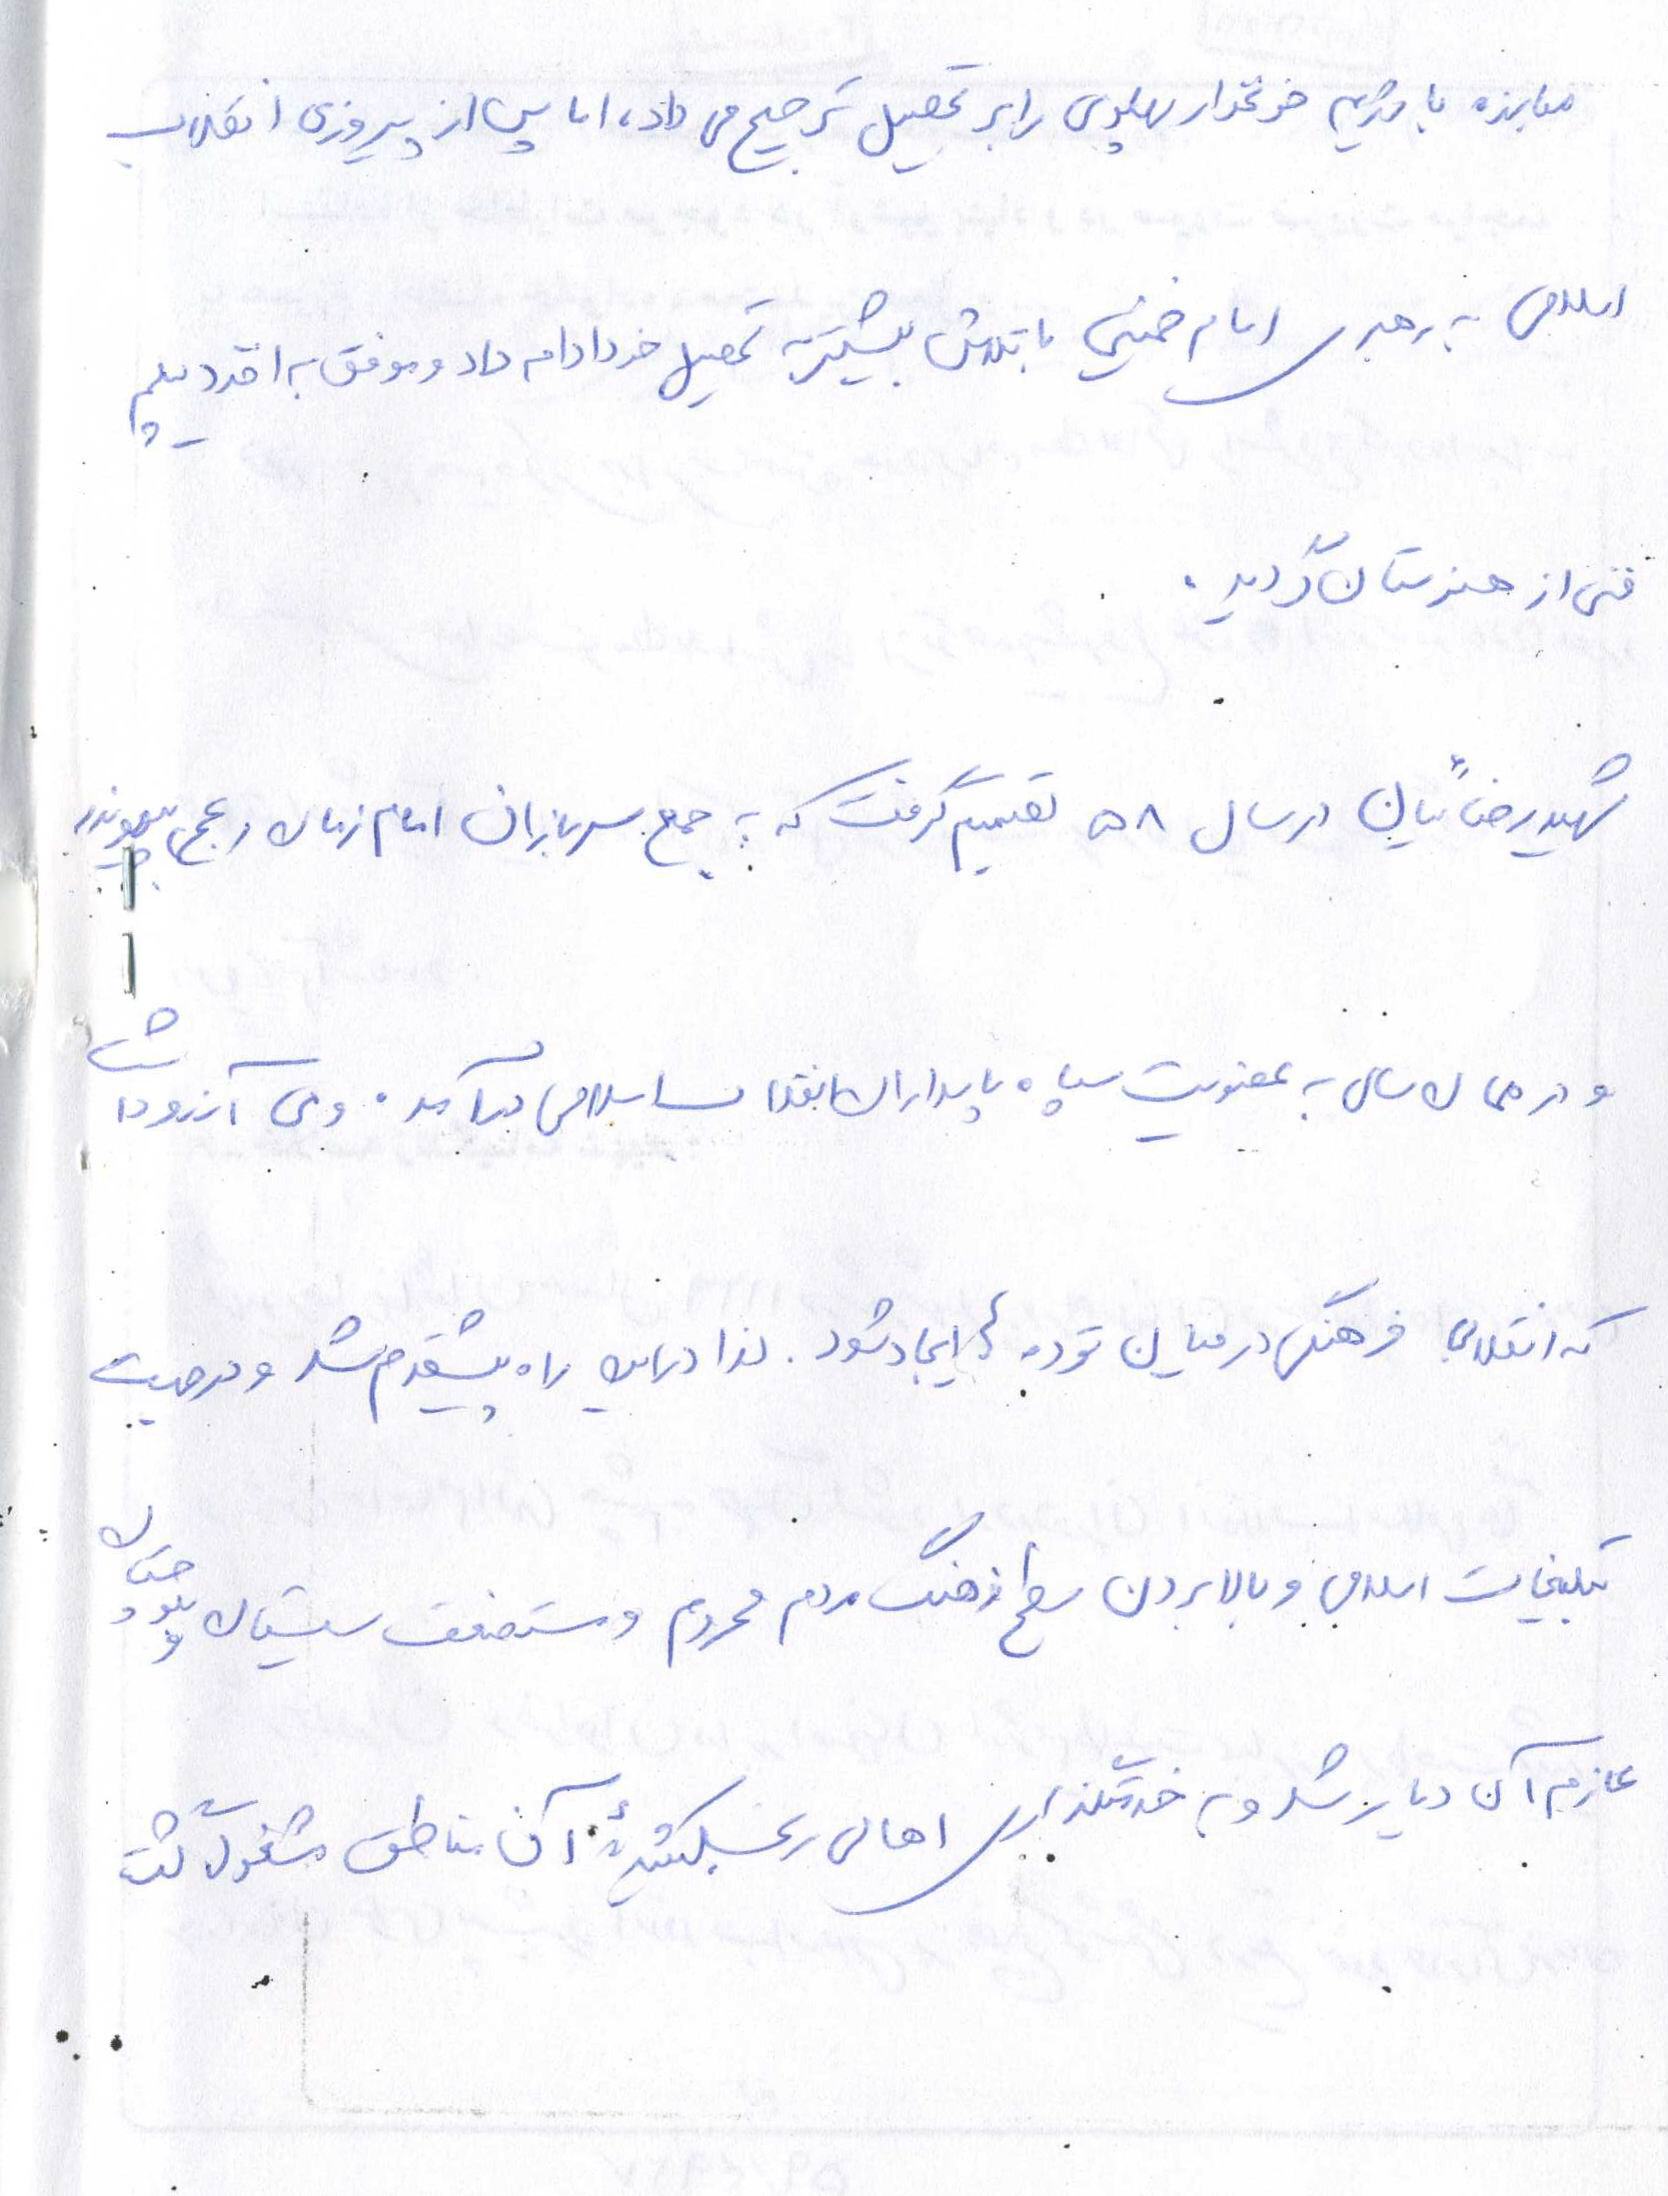 مبارزه با رژیم خونخوار پهلوی را بر تحصیل ترجیح می داد، اما پس از پیروزی انقلاب
اسلامی به رهبری امام خمینی با تلاش بیشتر به تحصیل خود ادامه داد و موفق به اخذ دیپلم
فنی از هنرستان گردید.
شهید رضائیان در سال ۵۸ تصمیم گرفت که به جمع سربازان امام زمان (عج) بپیوندد
و در همان سال به عضویت سپاه پاسداران انقلاب اسلامی درآمد. وی آرزو داشت
که انقلابی فرهنگی در میان توده ها ایجاد شود. لذا در این راه پیشقدم شد و در جهت
تبلیغات اسلامی و بالا بردن سطح فرهنگ مردم محروم و مستضعف سیستان و بلوچستان
عازم آن دیار شد و به خدمتگذاری اهالی زحمتکش آن مناطق مشغول گشت